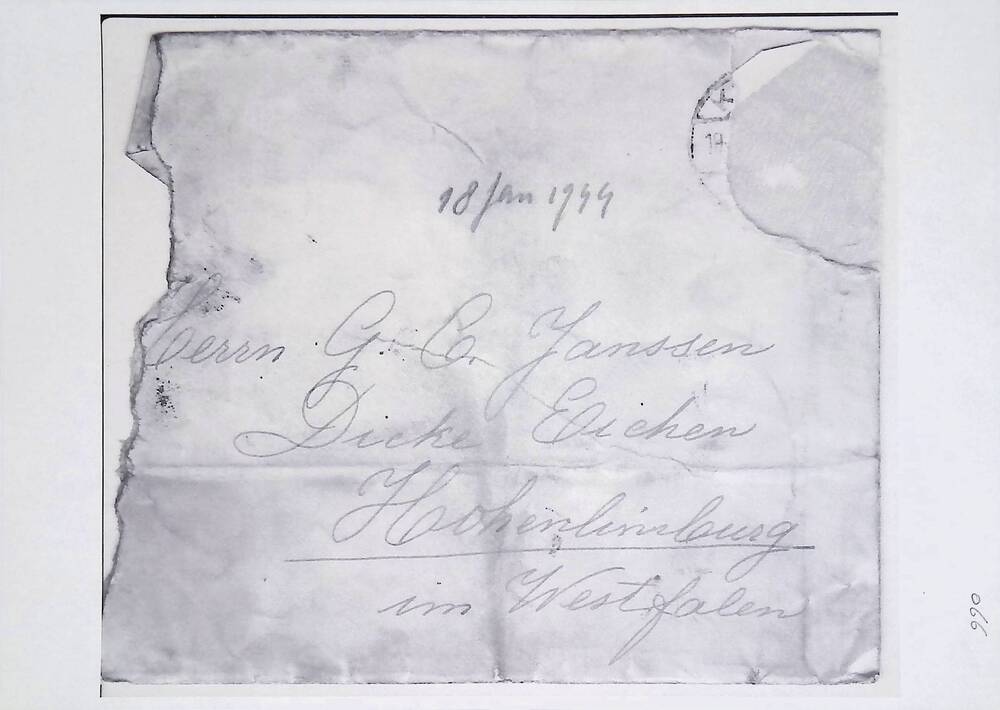 18 Jan 1944
Herrn G. C. Janssen
Dicke Eichen
Hohenlimburg
im Westfalen
990